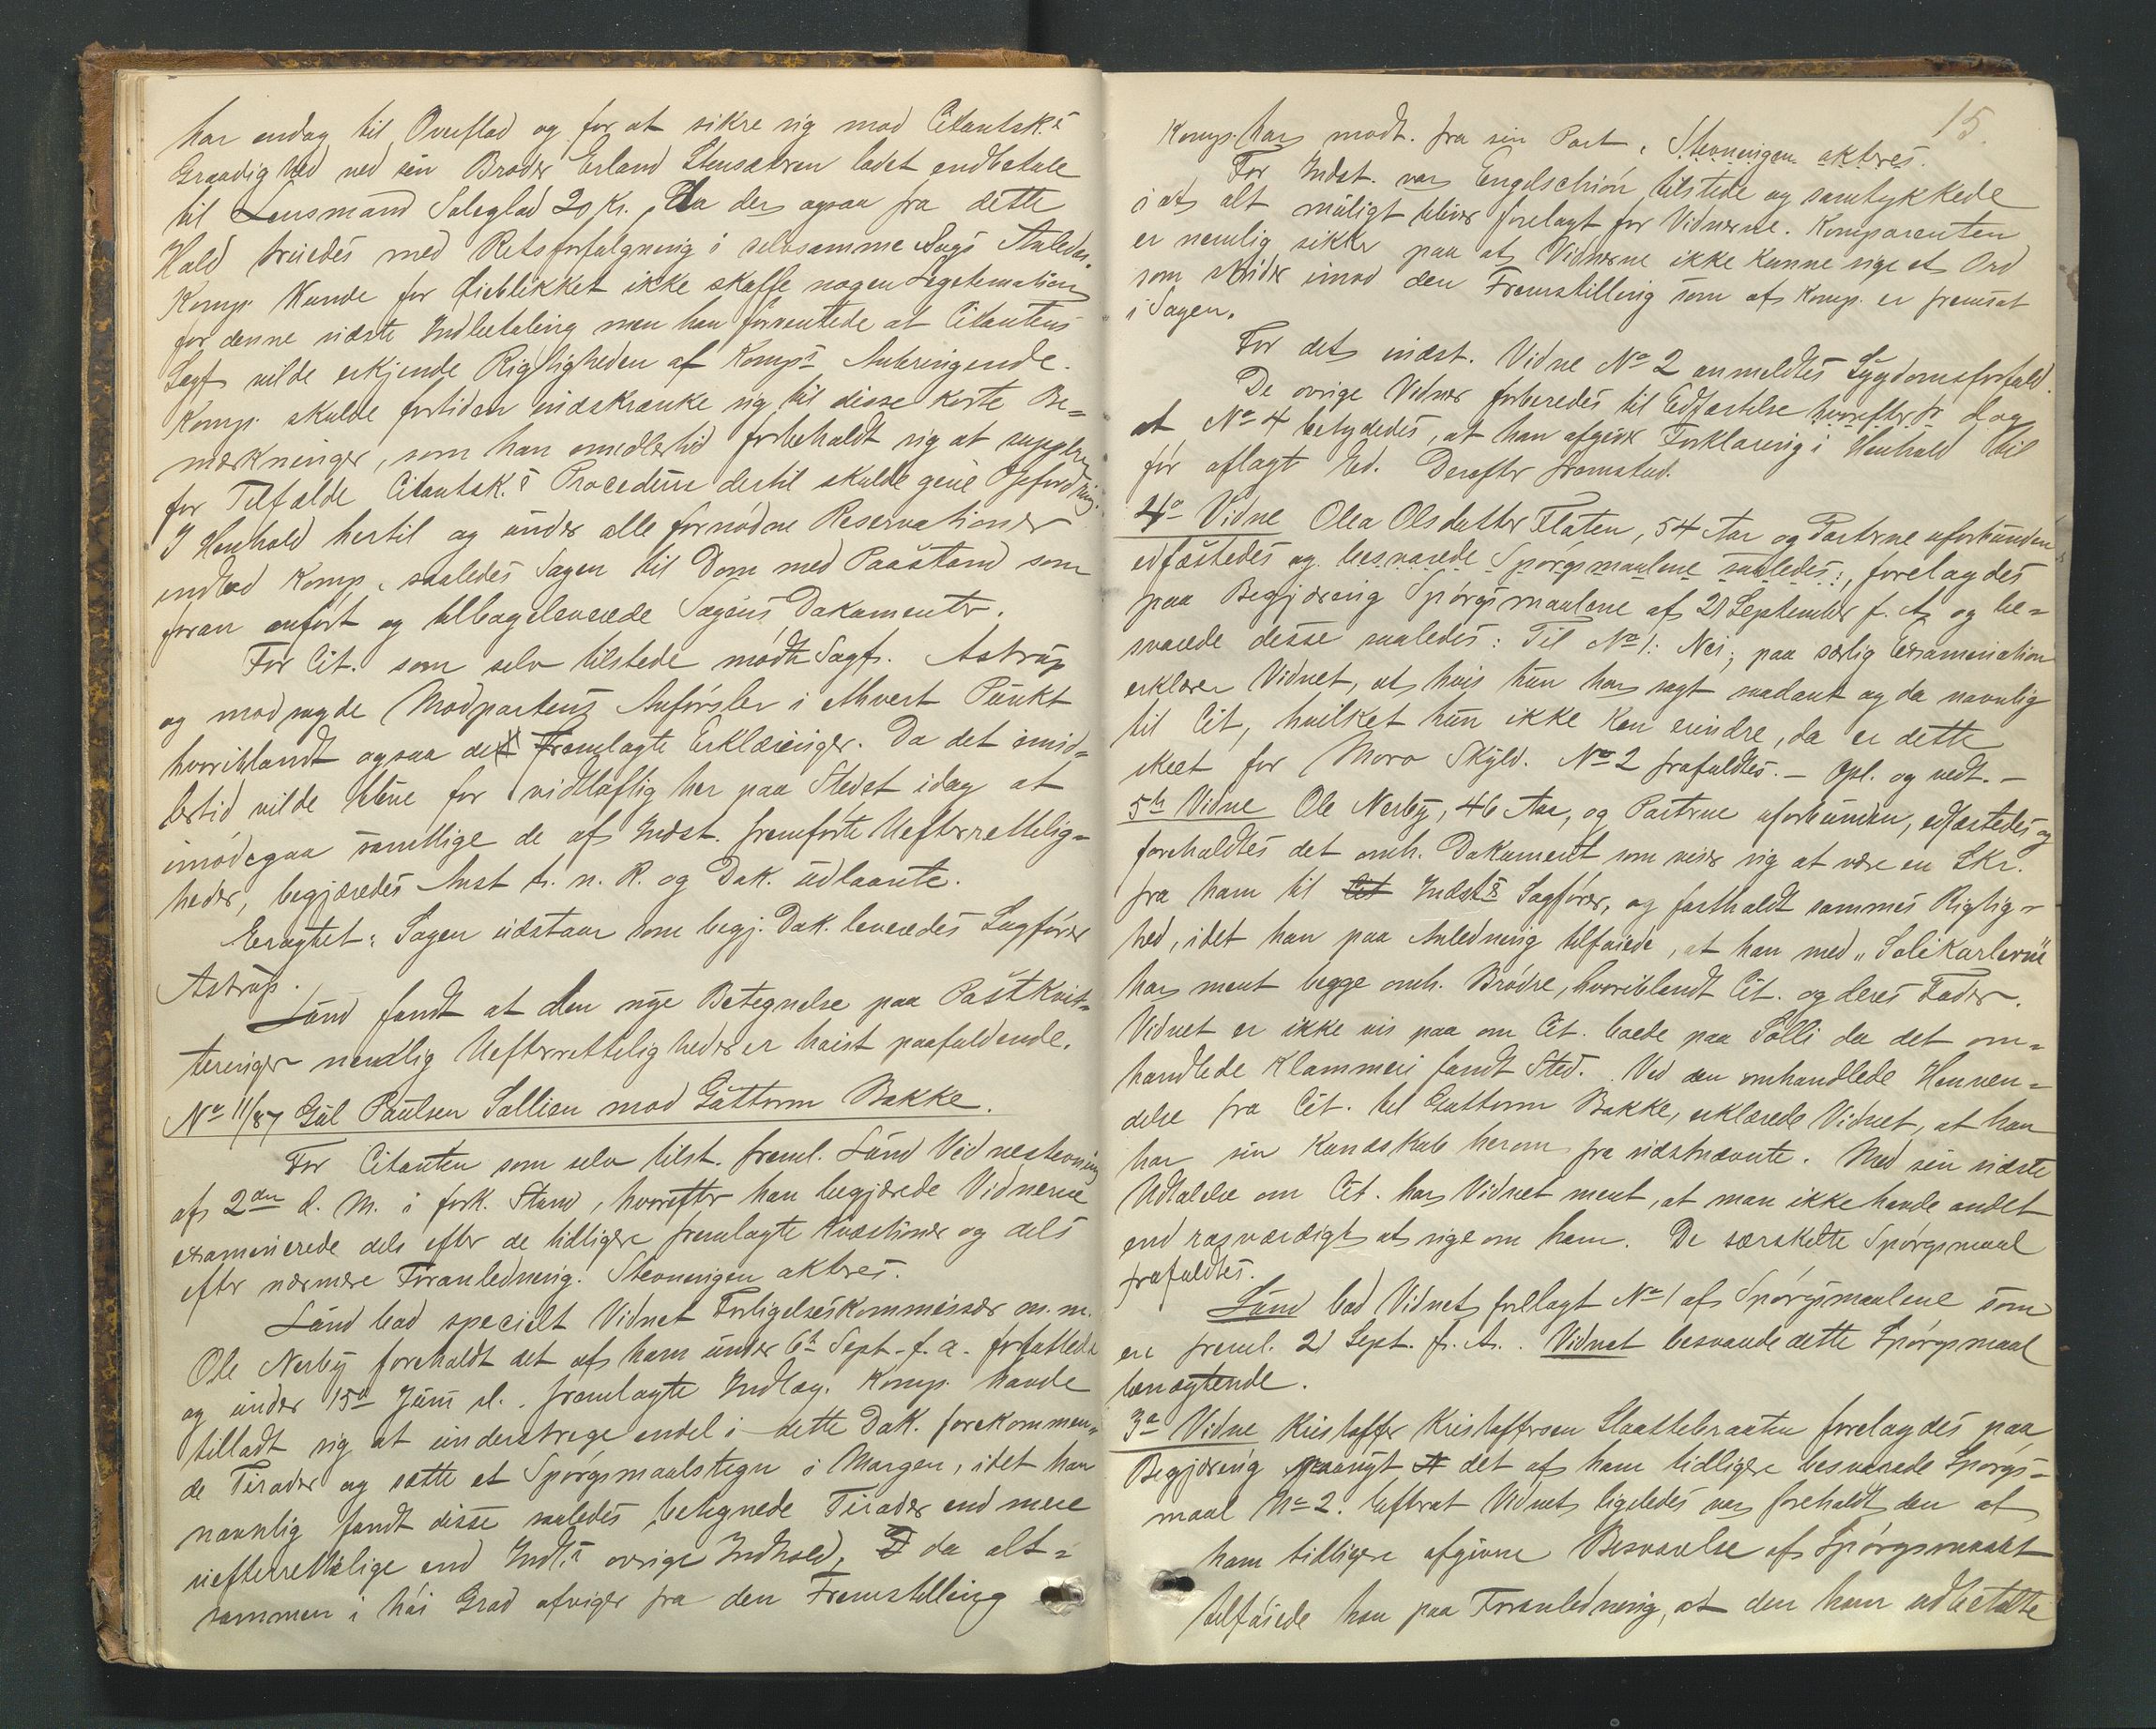 har endog til Overflod og for at sikre sig mod Citantsk.s
Graadighed ved sin Broder Erland Stensætren ladet indbetale
til Lensmand Soleglad 20 Kr., da der ogsaa fra dette
Hold truedes med Retsforfølgning i selvsamme Sags Anledn.
Komp. Kunde for Øieblikket ikke skaffe nogen Legitimation
for denne sidste Indbetaling men han forventede at Citantens
Sagf. vilde erkjende Rigtigheden af Komps Anbringende.
Komp. skulde fortiden indskrænke sig til disse korte Be=
mærkninger, som han imidlertid forbeholdt sig at supplere
for Tilfælde Citantsk.s Procedure dertil skulde give Opfordring.
I Henhold hertil og under alle fornødne Reservationer
indlod Komp. saaledes Sagen til Dom med Paastand som
foran anført og tilbageleverede Sagens Dokumenter.
For Cit. som selv tilstede mødte Sagf. Astrup
og modsagde Modpartens Anførsler i ethvert Punkt
hvoriblandt ogsaa de fremlagte Erklæringer. Da det imid=
lertid vilde blive for vidtløftig her paa Stedet idag at
imødegaa samtlige de af Indst. fremførte Uefterrettelig=
heder, begjæredes Anst t. n. R. og Dok. udlaante.
Eragtet: Sagen udstaar som begj. Dok. leveredes Sagfører
Astrup.
Lund fandt at den nye Betegnelse paa Postkvit=
teringer nemlig Uefterretteligheder er høist paafaldende.
No 11/87 Gul Paulsen Sollien mod Guttorm Bakke.
For Citanten som selv tilst. freml. Lund Vidnestevning
af 2den d. M. i fork. Stand, hvorefter han begjærede Vidnerne
examinerede dels efter de tidligere fremlagte Kvæstioner og dels
efter nærmere Foranledning. Stevningen akteres.
Lund bad specielt Vidnet Forligelseskommissær m.m.
Ole Nerby foreholdt det af ham under 6te Sept. f. a. forfattede
og under 15de Juni sl. fremlagte Indlæg. Komp. havde
tilladt sig at understrege endel i dette Dok. forekommen=
de Tirader og sætte et Spørgsmaalstegn i Margen, idet han
navnlig fandt disse saaledes betegnede Tirader end mere
uefterrettelige end Indl.s øvrige Indhold, da alt=
sammen i høi Grad afviger fra den Fremstilling
15.
Komp. har modt. fra sin Part. Stevningen akteres.
For Indst. var Engelschiøn tilstede og samtykkede
i at alt muligt bliver forelagt for Vidnerne. Komparenten
er nemlig sikker paa at Vidnerne ikke kunne sige et Ord
som strider imod den Fremstilling som af Komp. er fremsat
i Sagen.
For det indst. Vidne No 2 anmeldtes Sygdomsforfald.
De øvrige Vidner forberedes til Edfæstelse hvorefter dog
at No 4 betydedes, at han afgiver Forklaring i Henhold til
før aflagt Ed. Derefter fremstod.
4de Vidne Olea Olsdatter Flaten, 54 Aar og Parterne uforbunden
edfæstedes og besvarede Spørgsmaalene saaledes:, forelagdes
paa Begjæring Spørgsmaalene af 21 September f. A. og be=
svarede desse saaledes: Til No 1: Nei; paa særlig Examination
erklærer Vidnet, at hvis hun har sagt saadant og da navnlig
til Cit, hvilket hun ikke kan erindre, da er dette
skeet for Moro Skyld. No 2 frafaldtes. – Opl. og vedt. –
5te Vidne Ole Nerby, 46 Aar, og Parterne uforbunden, edfæstedes og
foreholdtes det omh. Dokument som viser sig at være en Skr.
fra ham til Cit Indsts Sagfører, og fastholdt sammes Rigtig=
hed, idet han paa Anledning tilføiede, at han med „Solikarlerne"
har ment begge omh. Brødre, hvoriblandt Cit. og deres Fader.
Vidnet er ikke vis paa om Cit. boede paa Solli da det om=
handlede Klammeri fandt Sted. Ved den omhandlede Henven=
delse fra Cit. til Guttorm Bakke, erklærede Vidnet, at han
har sin Kundskab herom fra sidstnævnte. Med sin sidste
Udtalelse om Cit. har Vidnet ment, at man ikke havde andet
end rosværdigt at sige om ham. De særskilte Spørgsmaal
frafaldtes.
Lund bad Vidnet forelagt No 1 af Spørgsmaalene som
er freml. 21 Sept. f. A. Vidnet besvarede dette Spørgsmaal
benægtende.
3de Vidne Kristoffer Kristoffersen Slaattebraaten forelagdes paa
Begjæring paanyt det af ham tidligere besvarede Spørgs=
maal No 2. Efterat Vidnet ligeledes var foreholdt den af
ham tidligere afgivne Besvarelse af Spørgsmaalet
tilføiede han paa Foranledning, at den ham udbetalte